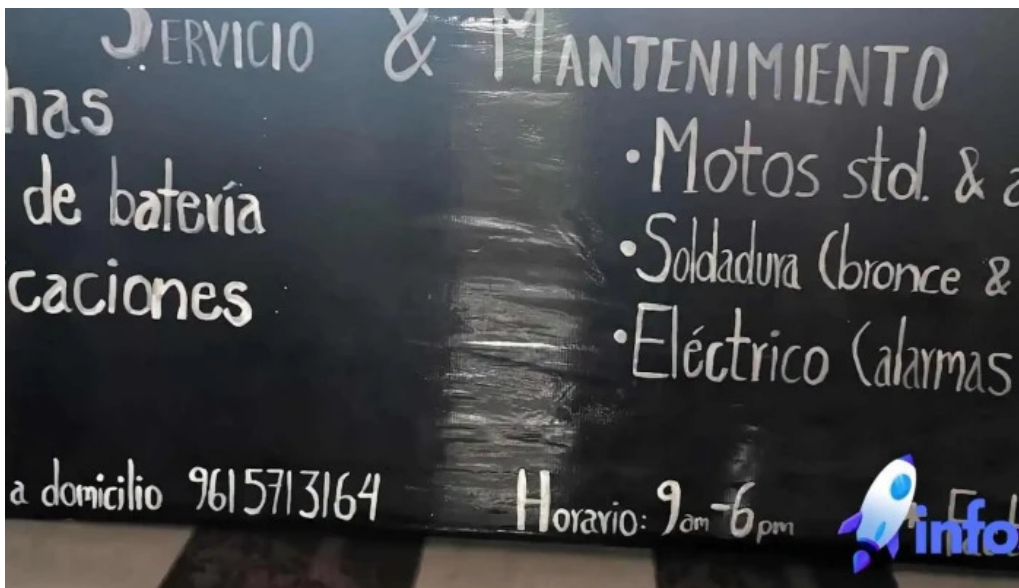 SERVICIO & MANTENIMIENTO
de batería
• Motos std. &
• Soldadura (bronce &
• Eléctrico (alarmas
a domicilio 9615713164
Horario: 9am-6pm
info